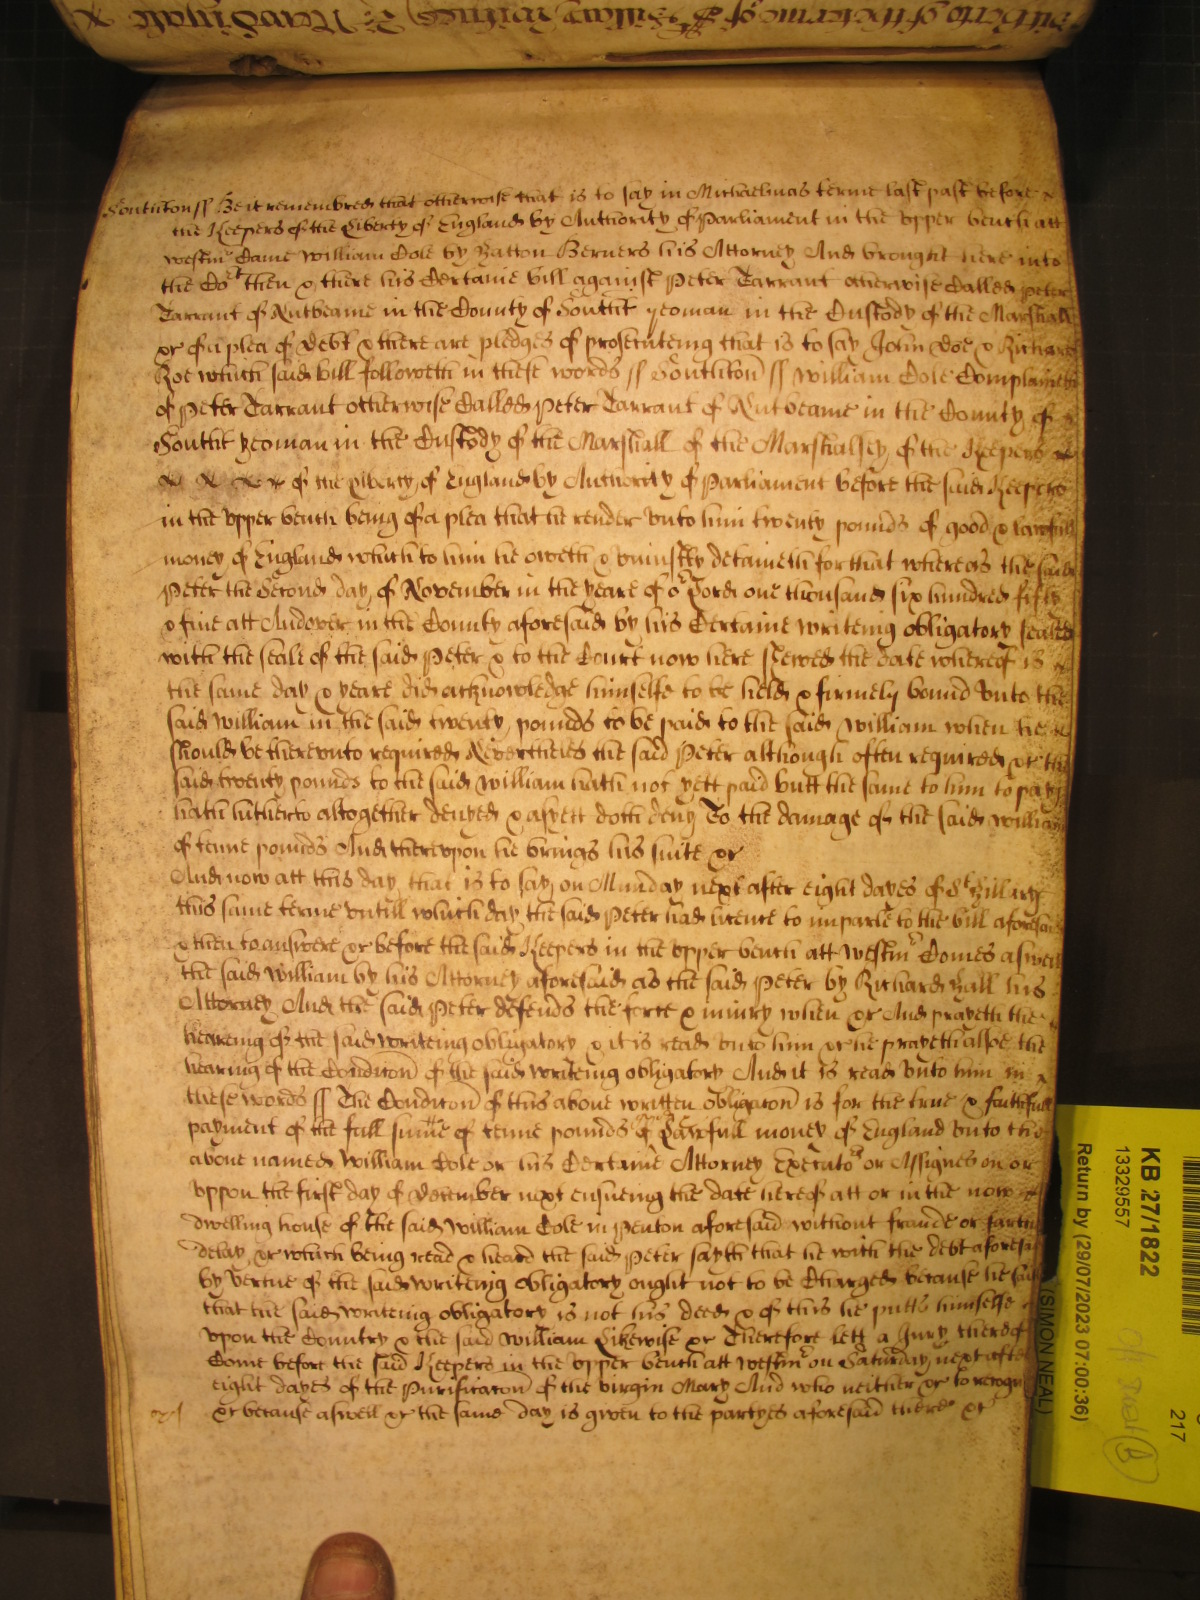 hitherto of the terme of St Hillary Witnes &c Newdigate
Southton ss Be it remembred that otherwise that is to say in Michaelmas terme last past before
the Keepers of the Liberty of England by Authority of Parliament in the upper bench att
Westmr Came William Cole by Hatton Berners his Attorney And brought here into
the Cort then & there his Certaine bill against Peter Tarrant otherwise Called Peter
Tarrant of Antbeame in the County of Southt yeoman in the Custody of the Marshall
&c of a plea of debt & there are pledges of prosecuteing that is to say John Doe & Richard
Roe which said bill followeth in these words ss Southton ss William Cole Complaineth
of Peter Tarrant otherwise Called Peter Tarrant of Antbeame in the County of
Southt yeoman in the Custody of the Marshall of the Marshalsey of the Keepers
of the Liberty of England by Authority of Parliament before the said Keepers
in the upper bench being of a plea that he render unto him twenty pounds of good & lawfull
money of England which to him he oweth & uniustly detaineth for that whereas the said
Peter the Second day of November in the yeare of or Lord one thousand six hundred fifty
& five att Andover in the County aforesaid by his Certaine writeing obligatory sealed
with the seale of the said Peter & to the Court now here shewed the date whereof is
the same day & yeare did acknowledge himselfe to be held & firmely bound unto the
said William in the said twenty pounds to be paid to the said William when he
should be thereunto required Nevertheles the said Peter although often required &c the
said twenty pounds to the said William hath not yett paid butt the same to him to pay
hath hitherto altogether denyed & as yett doth deny To the damage of the said William
of tenne pounds And thereupon he brings his suite &c
And now att this day that is to say on Munday next after eight dayes of St Hillary
this same terme untill which day the said Peter had licence to imparle to the bill aforesaid
& then to answere &c before the said Keepers in the upper bench att Westmr Comes aswell
the said William by his Attorney aforesaid as the said Peter by Richard Hall his
Attorney And the said Peter defends the force & iniury when &c And prayeth the
heareing of the said writeing obligatory & it is read unto him &c he prayeth alsoe the
hearing of the Conditon of the said writeing obligatory And it is read unto him in
these words ss The Conditon of this above written obligaton is for the true & faithfull
payment of the full summe of tenne pounds of Lawfull money of England unto the
above named William Cole or his Certaine Attorney Executors or Assignes on or
uppon the first day of December next ensueing the date hereof att or in the now
dwelling house of the said William Cole in Penton aforesaid without fraude or farther
delay &c which being read & heard the said Peter sayth that he with the debt aforesaid
by vertue of the said writeing obligatory ought not to be Charged because he saith
that the said writeing obligatory is not his deed & of this he putts himselfe
upon the Country & the said William Likewise &c Therefore lett a Jury thereof
Come before the said Keepers in the upper bench att Westmr on Saturday next after
eight dayes of the Purificaton of the virgin Mary And who neither &c to recogn
&c because aswell &c the same day is given to the partyes aforesaid there &c
KB 27/1822
13329557
Return by (29/07/2023 07:00:36)
(SIMON NEAL)
217